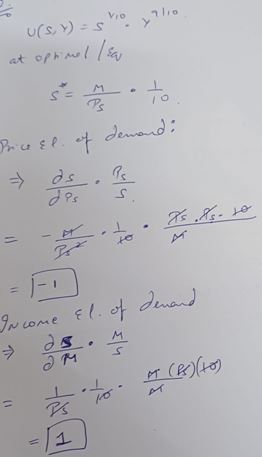 U(S,Y) = S^1/10 · Y^9/10
at optimal / eq
S* = M/Ps · 1/10.
Price El. of demand:
⇒ ∂S/∂Ps · Ps/S
= - M/Ps² · 1/10 · Ps · Ps · 10/M
= -1
Income El. of demand
⇒ ∂S/∂M · M/S
= 1/Ps · 1/10 · M (Ps)(10)/M
= 1